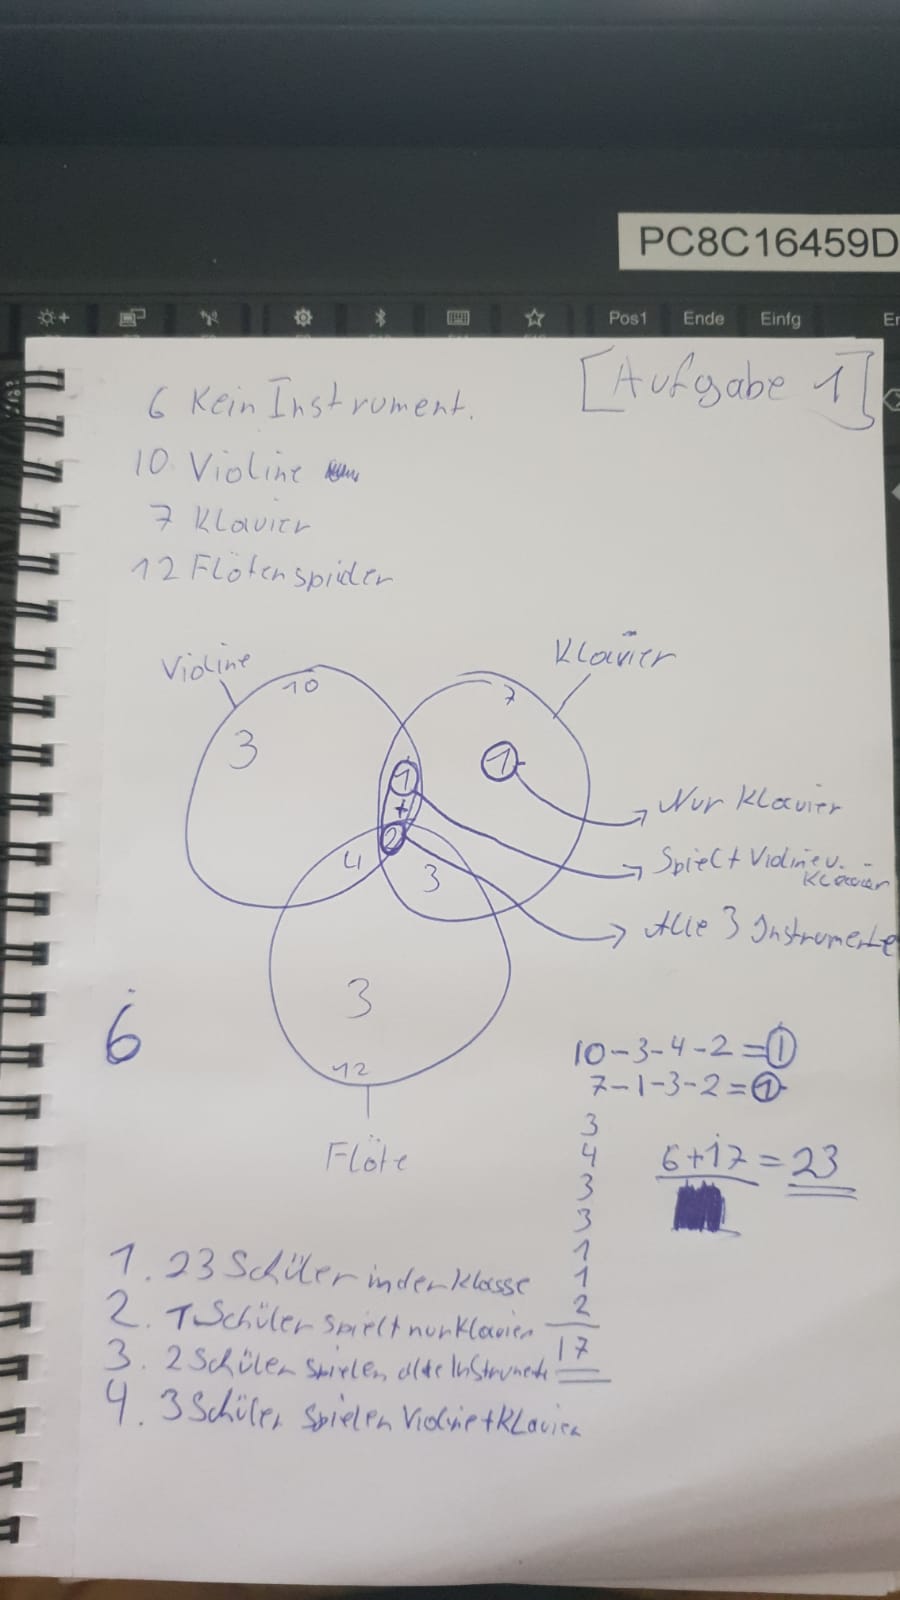 PC8C16459D
Pos1 Ende Einfg
[Aufgabe 1]
6 Kein Instrument.
10 Violine
7 Klavier
12 Flötenspieler
Violine
Klavier
10
7
3
1
1
+
2
4
3
3
12
Flöte
6
Nur Klavier
Spielt Violine u. Klavier
Alle 3 Instrumente
10-3-4-2=1
7-1-3-2=1
3
4
3
3
1
1
2
17
6+17=23
1. 23 Schüler in der Klasse
2. 1 Schüler spielt nur Klavier
3. 2 Schüler spielen alle Instrumente
4. 3 Schüler spielen Violine+Klavier